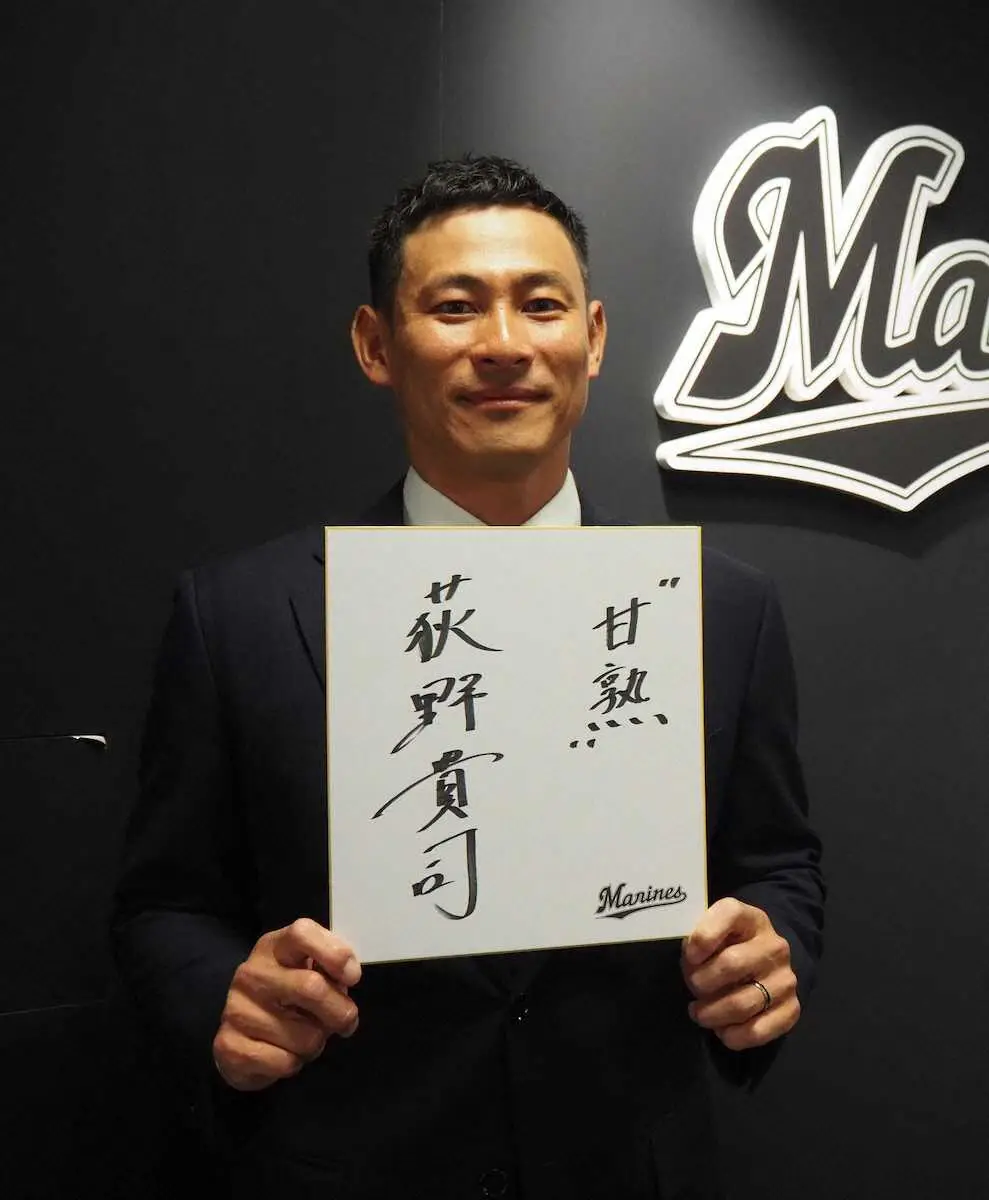 "甘熟"
荻野貴司
Marines
Ma